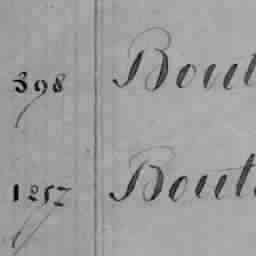 398 Bout
1257 Bout